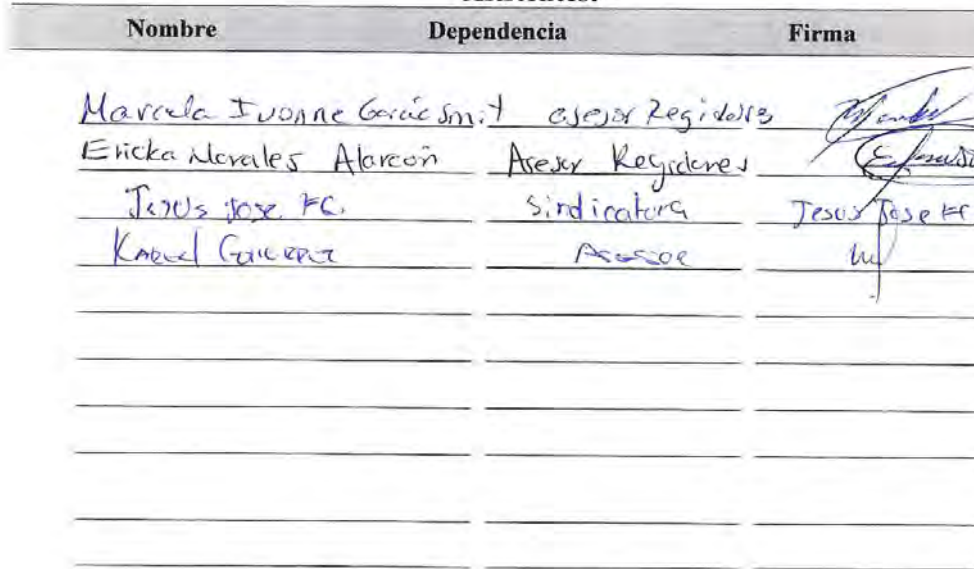 Nombre Dependencia Firma
Marcela Ivonne García Smit asesor Regidores
Ericka Morales Alarcón Asesor Regidores
Jesus Jose FC. Sindicatura Jesus Jose FC
Asesor